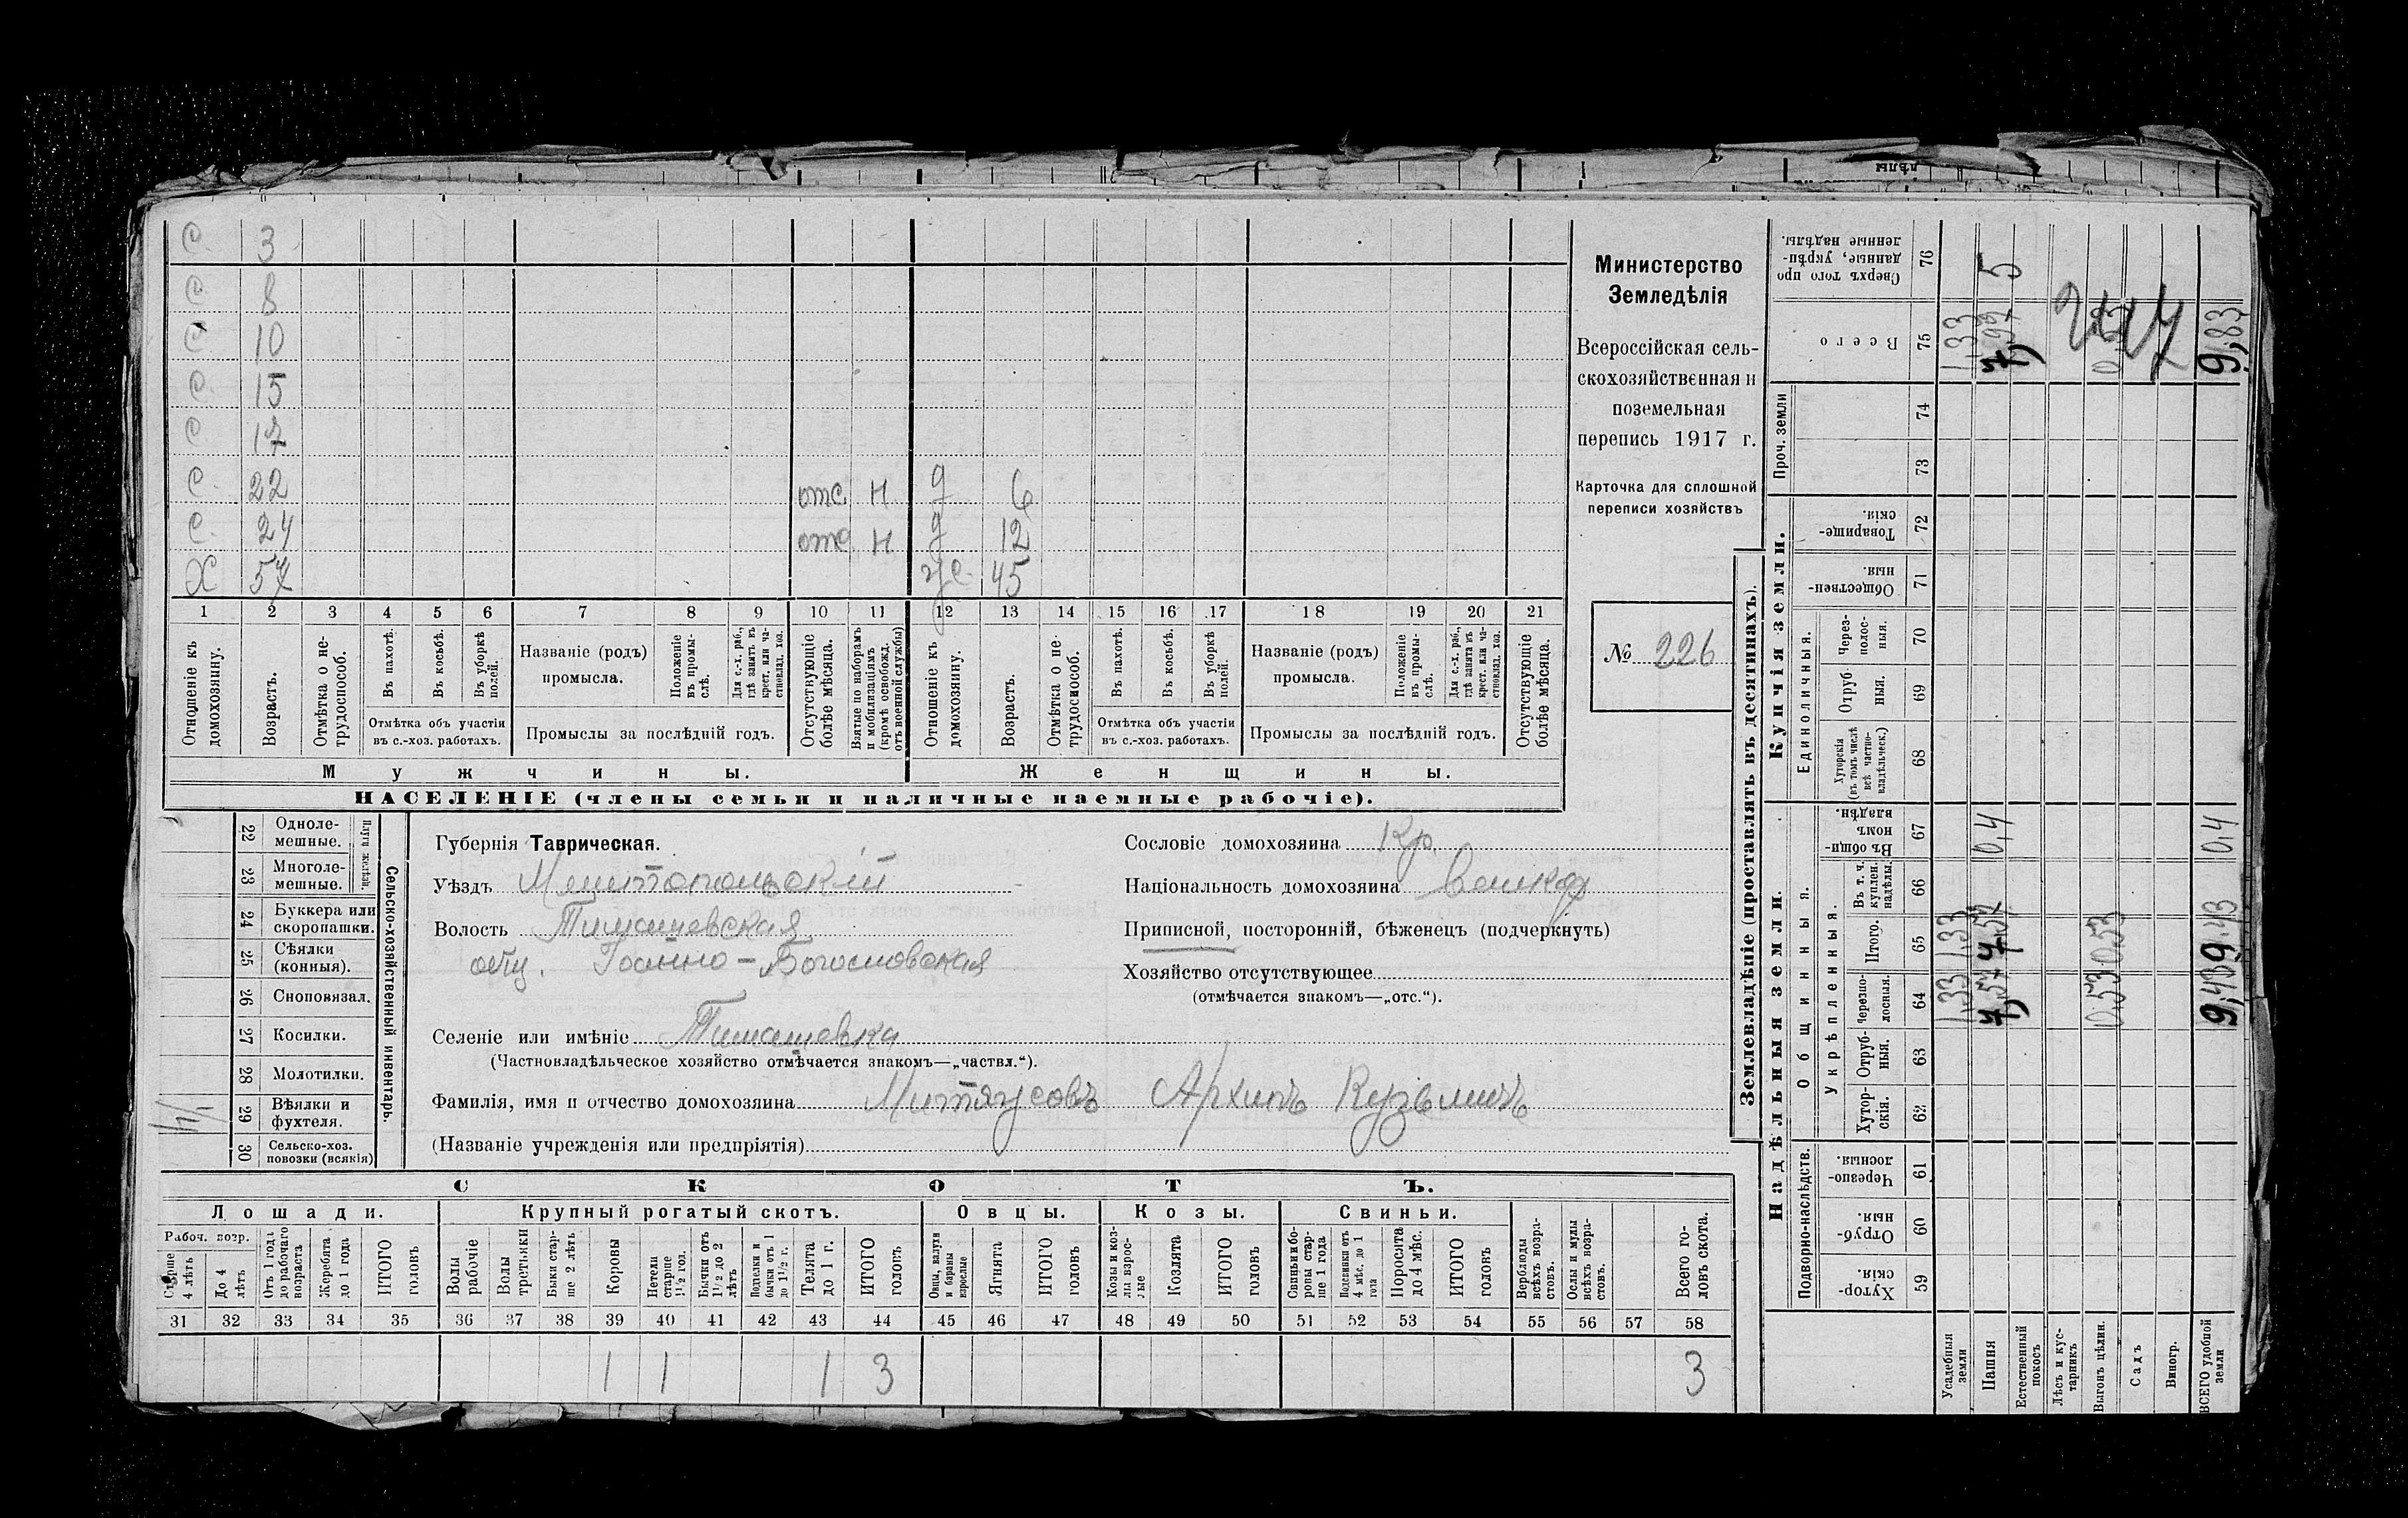 С. 3
С 8
С. 10
С. 15
С. 17
С. 22 отс. н д 6
С. 24 отс н д 12
Х 57 ж 45
1 2 3 4 5 6 7 8 9 10 11 12 13 14 15 16 17 18 19 20 21
Отношеніе къ домохозяину.
Возрастъ.
Отмѣтка о нетрудоспособ.
Въ пахотѣ.
Въ косьбѣ.
Въ уборкѣ полей.
Отмѣтка объ участіи
въ с.-хоз. работахъ.
Названіе (родъ)
промысла.
Положеніе въ промыслѣ.
Для с.-х. раб., гдѣ занятъ въ крест. или частновлад. хоз.
Промыслы за послѣдній годъ.
Отсутствующіе болѣе мѣсяца.
Взятые по наборамъ и мобилизаціямъ (кромѣ освобожд. отъ военной службы)
Отношеніе къ домохозяину.
Возрастъ.
Отмѣтка о нетрудоспособ.
Въ пахотѣ.
Въ косьбѣ.
Въ уборкѣ полей.
Отмѣтка объ участіи
въ с.-хоз. работахъ.
Названіе (родъ)
промысла.
Положеніе въ промыслѣ.
Для с.-х. раб., гдѣ занята въ крест. или частновлад. хоз.
Промыслы за послѣдній годъ.
Отсутствующіе болѣе мѣсяца.
Мужчины. Женщины.
НАСЕЛЕНІЕ (члены семьи и наличные наемные рабочіе).
Министерство
Земледѣлія
Всероссійская сель-
скохозяйственная и
поземельная
перепись 1917 г.
Карточка для сплошной
переписи хозяйствъ
№ 226
Сельско-хозяйственный инвентарь.
Плуги желѣзн.
22 Одноле-
мешные.
23 Многоле-
мешные.
24 Буккера или
скоропашки.
25 Сѣялки
(конныя).
26 Сноповязал.
27 Косилки.
28 Молотилки.
29 Вѣялки и
фухтеля.
30 Сельско-хоз.
повозки (всякія)
Губернія Таврическая.
Уѣздъ Мелитопольскій
Волость Тимашевская
общ. Іоанно-Богословская
Селеніе или имѣніе Тимашевка
(Частновладѣльческое хозяйство отмѣчается знакомъ—„частвл.“).
Фамилія, имя и отчество домохозяина Митягусовъ Архипъ Кузьмичъ
(Названіе учрежденія или предпріятія)
Сословіе домохозяина Кр.
Національность домохозяина
Приписной, посторонній, бѣженецъ (подчеркнуть)
Хозяйство отсутствующее
(отмѣчается знакомъ—„отс.“).
СКОТЪ.
Лошади. Крупный рогатый скотъ. Овцы. Козы. Свиньи.
Рабоч. возр.
Старше 4 лѣтъ
До 4 лѣтъ
Отъ 1 года до рабочаго возраста
Жеребята до 1 года
ИТОГО головъ
Волы рабочіе
Волы третьяки
Быки старше 2 лѣтъ
Коровы
Нетели старше 1½ год.
Бычки отъ 1½ до 2 лѣтъ
Подтелки и бычки отъ 1 до 1½ г.
Телята до 1 г.
ИТОГО головъ
Овцы, валухи и бараны взрослые
Ягнята
ИТОГО головъ
Козы и козлы взрослые
Козлята
ИТОГО головъ
Свиньи и боровы старше 1 года
Подсвинки отъ 4 мѣс. до 1 года
Поросята до 4 мѣс.
ИТОГО головъ
Верблюды всѣхъ возрастовъ.
Ослы и мулы всѣхъ возрастовъ.
Всего головъ скота.
31 32 33 34 35 36 37 38 39 40 41 42 43 44 45 46 47 48 49 50 51 52 53 54 55 56 57 58
1 1 1 3 3
Землевладѣніе (проставлять въ десятинахъ).
Надѣльныя земли. Купчія земли.
Подворно-наслѣдств.
Общинныя.
Укрѣпленныя.
Единоличныя.
Проч. земли
59 Хутор-
скія.
60 Отруб-
ныя.
61 Черезпо-
лосныя.
62 Хутор-
скія.
63 Отруб-
ныя.
64 Черезпо-
лосныя.
65 Итого.
66 Въ т. ч. куплен. надѣлы.
67 Въ общинномъ владѣн.
68 Хуторскія (въ томъ числѣ всѣ частновладѣльческ.)
69 Отруб-
ныя.
70 Через-
полос-
ныя.
71 Обществен-
ныя.
72 Товарище-
скія.
73
74
75 Всего
76 Сверхъ того проданные, укрѣпленные надѣлы.
Усадебныя земли 1,33 1,33 1,33
Пашня 7,57 7,57 0,4 5
Естественный покосъ
Лѣсъ и кустарникъ
Выгонъ цѣлин. 0,53 0,53
Садъ
Виногр.
ВСЕГО удобной земли 9,43 9,43 0,4 9,83